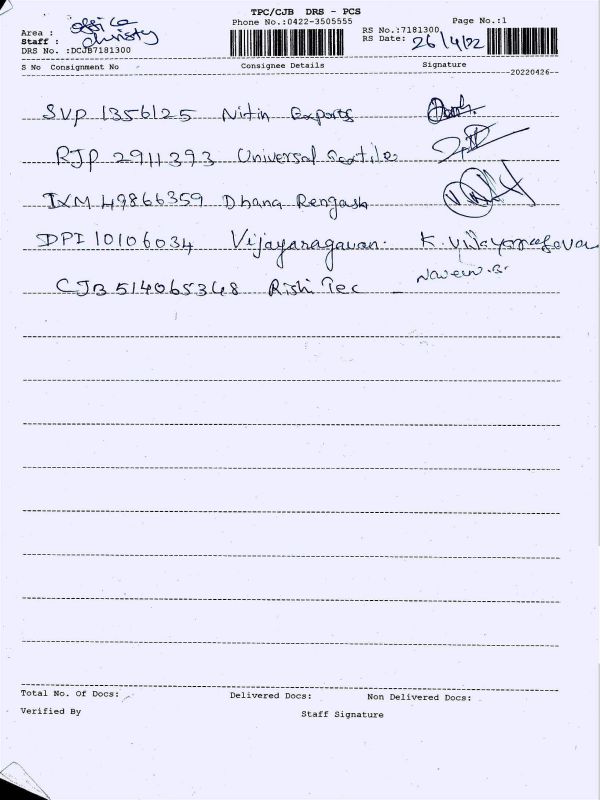 TPC/CJB DRS - PCS
Phone No.:0422-3505555
Page No.:1
Area : office
Staff : Christy
DRS No. :DCJB7181300
RS No.:7181300
RS Date: 26/4/22
S No Consignment No Consignee Details Signature
20220426
SVP 1356125 Nitin Exports
RJP 2911393 Universal Textiles
IXM 49866359 Dhana Rengash
DPI 10106034 Vijayaragavan. K. Vijayaragavan
CJB 514065348 Rishi Tec - Naveen.
Total No. Of Docs: Delivered Docs: Non Delivered Docs:
Verified By Staff Signature